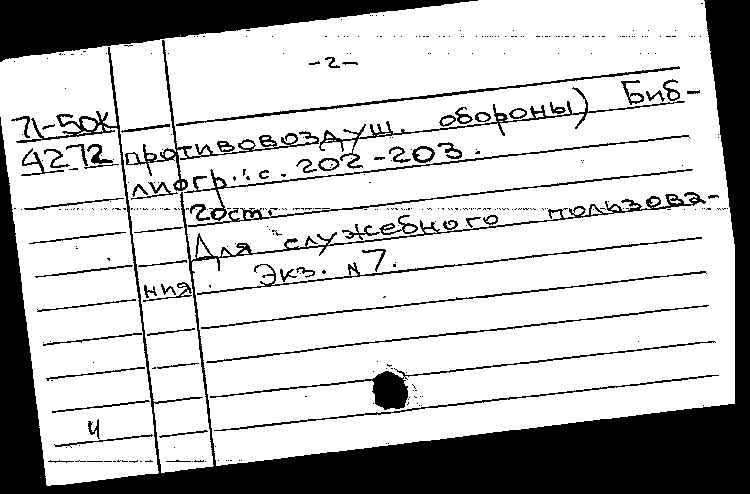 -2-
71-50К
4272 противовоздуш. обороны) Биб-
лиогр.: с. 202-203.
2ост.
Для служебного пользова-
ния. Экз. №7.
4